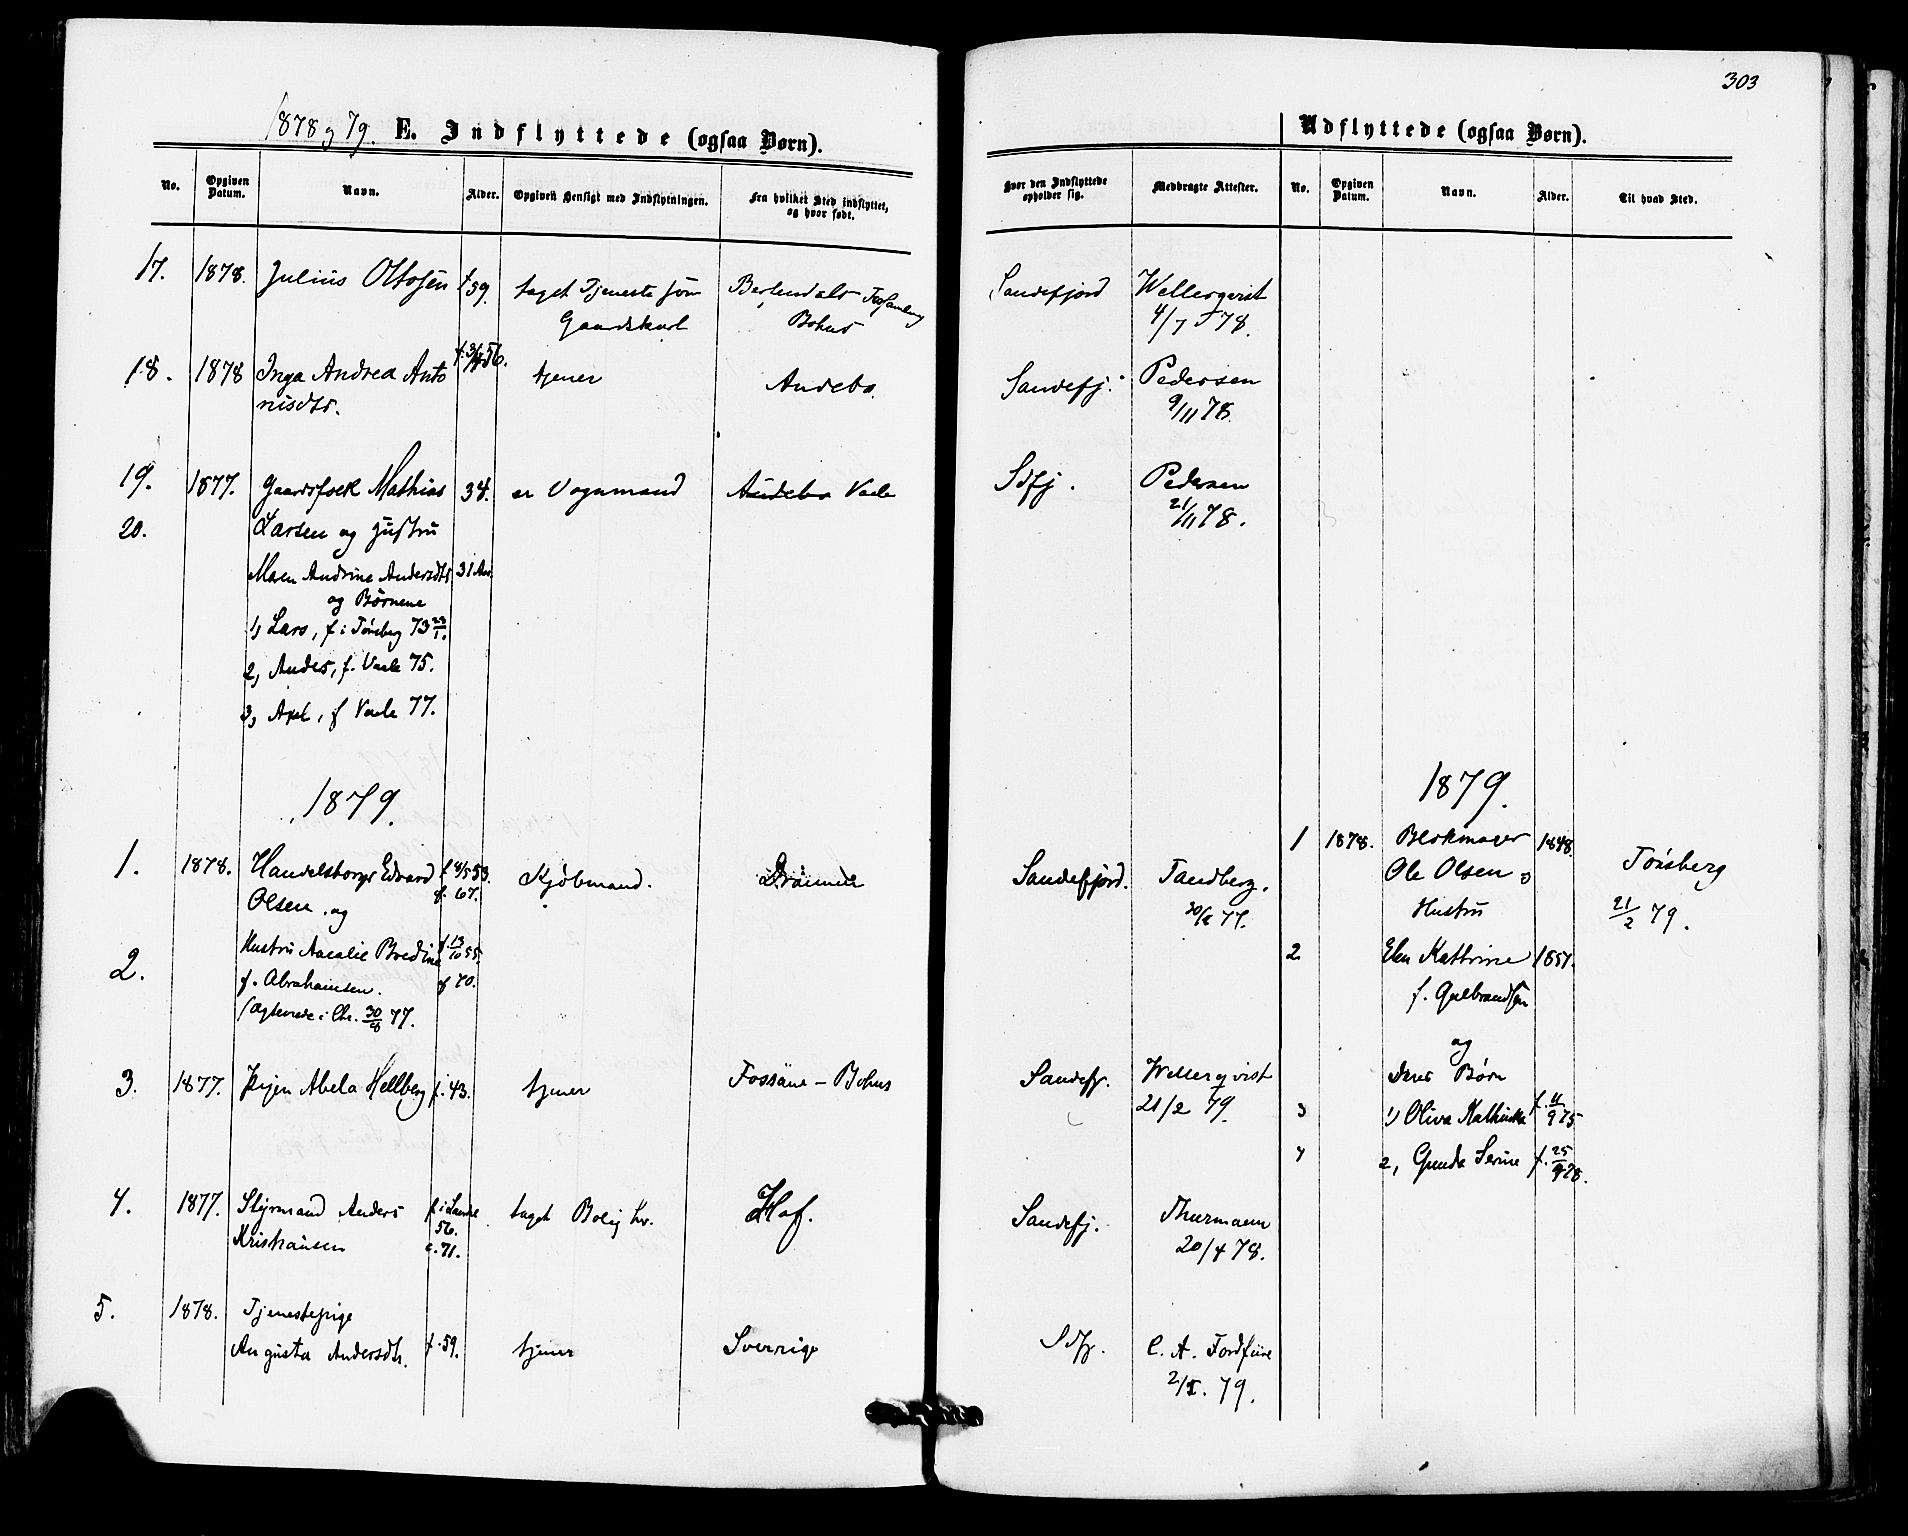 303
1878 og 79. E. Indflyttede (ogsaa Børn).
Udflyttede (ogsaa Børn).
No. Opgiven Datum. Navn. Alder. Opgiven Hensigt med Indflytningen. Fra hvilket Sted indflyttet, og hvor født.
Hvor den Indflyttede opholder sig. Medbragte Attester. No. Opgiven Datum. Navn. Alder. Til hvad Sted.
17. 1878. Julius Ottosen f 59. taget Tjeneste som Sandefjord Wellerqvist
Gaardskarl Bohus 4/7 78.
18. 1878 Inga Andrea Anto f. 56. tjener Andebo. Sandefj. Pedersen
nisdtr. 9/11 78.
19. 1877. Gaardsfolk Mathias 34. er Vognmand Vaale Sdfj. Pedersen
20. Larsen og Hustru 21/11 78.
Maren Andrine Andersdtr 31 Aar
og Børnene
1, Lars, f i Tønsberg 73 23/1.
2, Anders, f. Vaale 75.
3, Axel, f Vaale 77.
1879.
1879.
1. 1878. Handelsborger Edvard f 8/5 53. Kjøbmand. Drammen Sandefjord. Tandberg. 1 1878. Blokmager 1848. Tønsberg
Olsen og 67. 77. Ole Olsen og 21/2 79.
Hustru
2. Hustru Amalie Bredine f. 13/10 55. 2. Elen Kathrine 1851.
f. Abrahamsen. 70. f. Gulbrandsen
(Ægteviede i Chr. 30/8 77.
og
3. 1877. Pigen Abela Hellberg f. 43. tjener Fossäne - Bohus Sandefj. Wellerqvist deres Børn
21/2 79. 3 1) Oliva Kathinka f. 11/9 75
4 2, Gunda Serine f. 25/9 78.
4. 1877. Styrmand Anders 56. taget Bolig her. Hof. Sandefj. Thurmann
Kristiansen c. 71. 20/4 78.
5. 1878. Tjenestepige
Augusta Andersdtr. f. 59. tjener Sverrige Sdfj. C. A.
79.